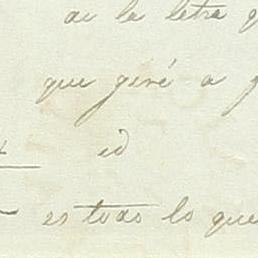 de la letra q
que giré a
id
es todo lo que